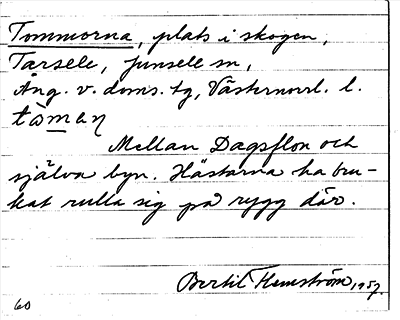 Tommorna, plats i skogen,
Tarsele, Junsele sn,
Ång. v. doms. tg, Västernorrl. l.
Mellan Dagsflon och
själva byn. Hästarna ha bru-
kat rulla sig på rygg där.
Bertil Flemström, 1957.
60